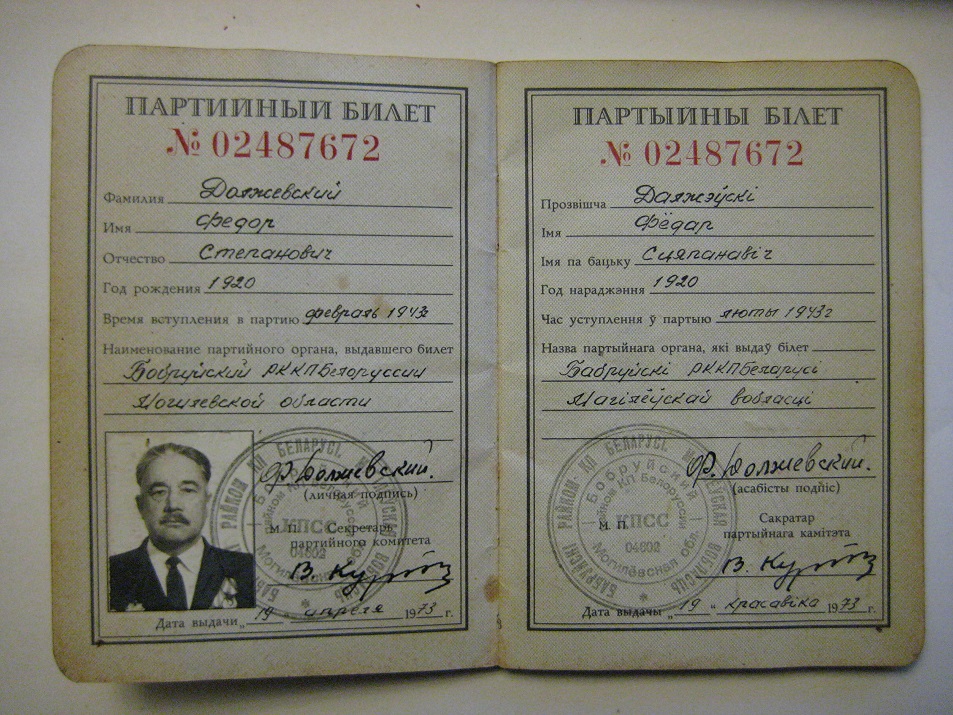 ПАРТИЙНЫЙ БИЛЕТ
№ 02487672
Фамилия Должевский
Имя Федор
Отчество Степанович
Год рождения 1920
Время вступления в партию февраль 1943г
Наименование партийного органа, выдавшего билет
Бобруйский РК КП Белоруссии
Могилевской области
Ф. Должевский.
(личная подпись)
М. П. Секретарь
партийного комитета
Дата выдачи „19 " апреля 1973 г.
БАБРУЙСКІ РАЙКОМ КП БЕЛАРУСІ
КПСС
04602
ПАРТЫЙНЫ БІЛЕТ
№ 02487672
Прозвішча Далжэўскі
Імя Фёдар
Імя па бацьку Сцяпанавіч
Год нараджэння 1920
Час уступлення ў партыю люты 1943г
Назва партыйнага органа, які выдаў білет
Бабруйскі РК КП Беларусі
Магілёўскай вобласці
Ф. Должевский.
(асабісты подпіс)
М. П. Сакратар
партыйнага камітэта
Дата выдачы „19 " красавіка 1973 г.
БАБРУЙСКІ РАЙКОМ КП БЕЛАРУСІ МАГІЛЁЎСКАЯ ВОБЛАСЦЬ
Бобруйский райком КП Белоруссии Могилёвская обл.
КПСС
04602